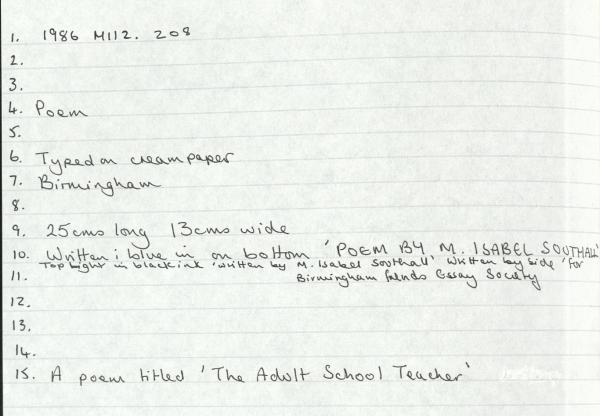 1. 1986 M112. 208
2.
3.
4. Poem
5.
6. Typed on cream paper
7. Birmingham
8.
9. 25cms long 13cms wide
10. Written i blue in on bottom 'POEM BY M. ISABEL SOUTHALL'
Top right in black ink 'written by M. Isabel Southall' written by side 'for
11. Birmingham friends Essay Society
12.
13.
14.
15. A poem titled 'The Adult School Teacher'